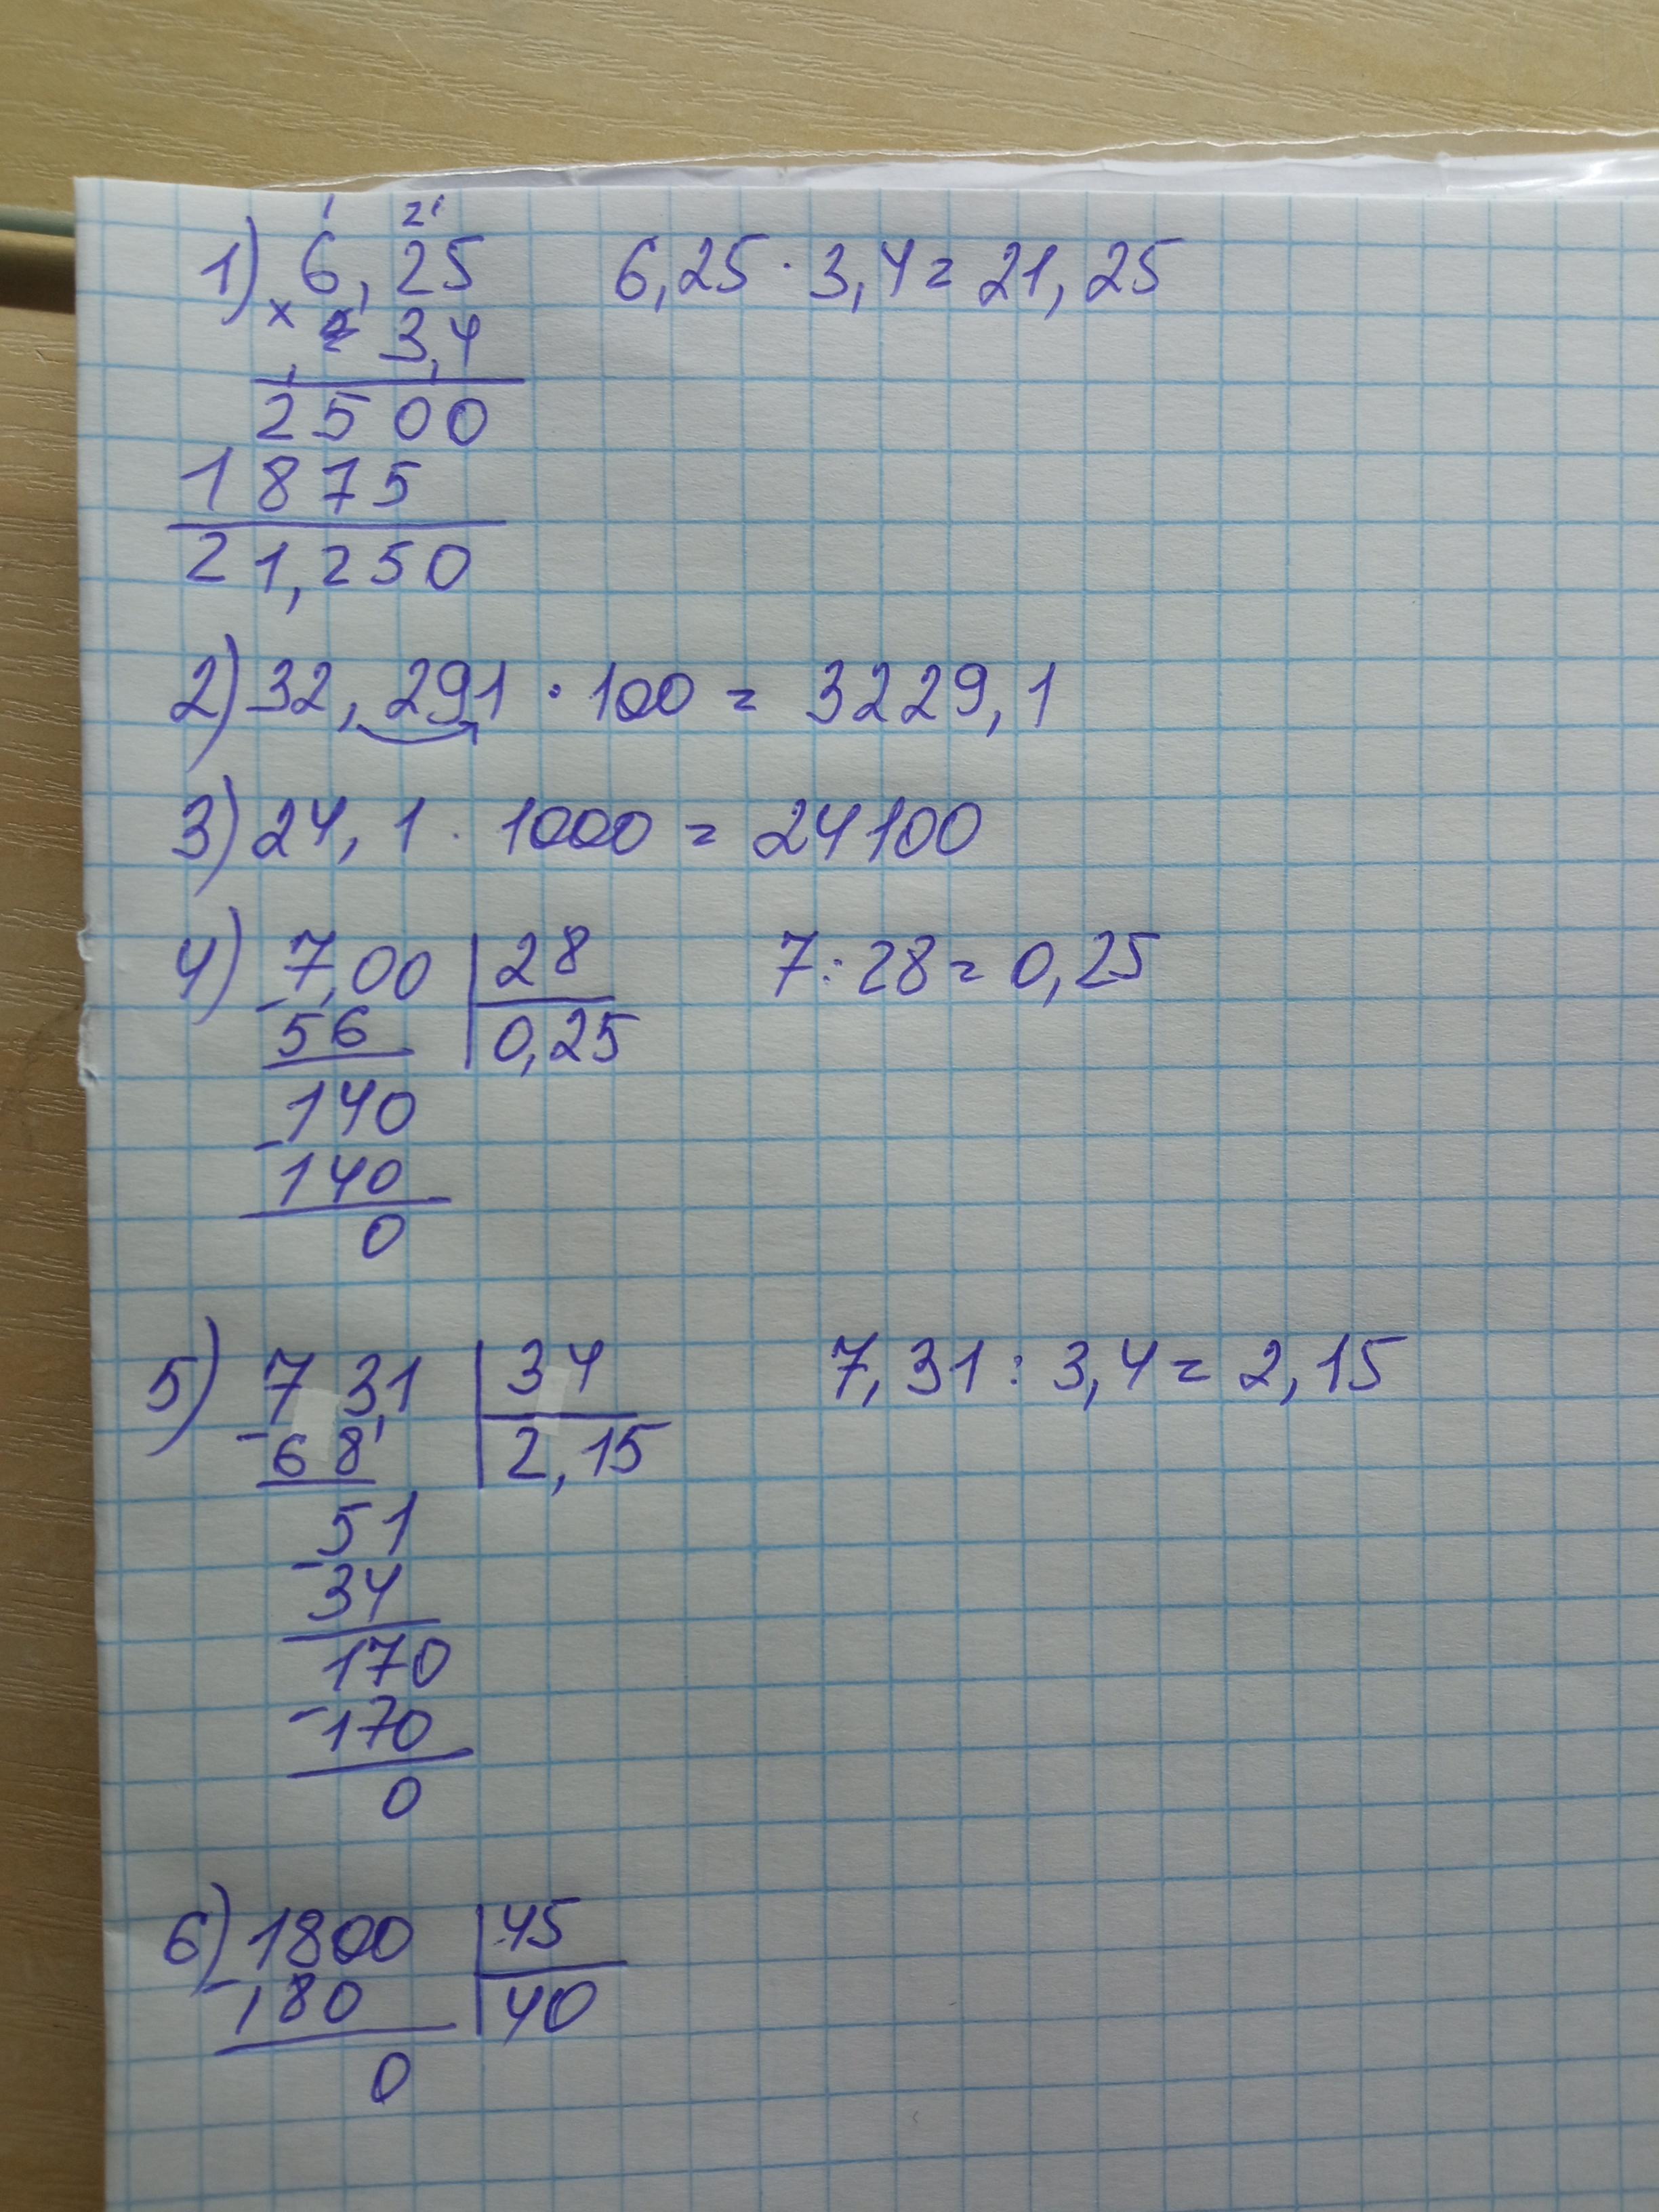 1) 6,25 6,25 · 3,4 = 21,25
× 3,4
2500
1875
21,250
2) 32,291 · 100 = 3229,1
3) 24,1 · 1000 = 24100
4) 7,00 28 7 : 28 = 0,25
- 56 0,25
140
- 140
0
5) 73,1 34 7,31 : 3,4 = 2,15
- 68 2,15
51
- 34
170
- 170
0
6) 1800 45
- 180 40
0